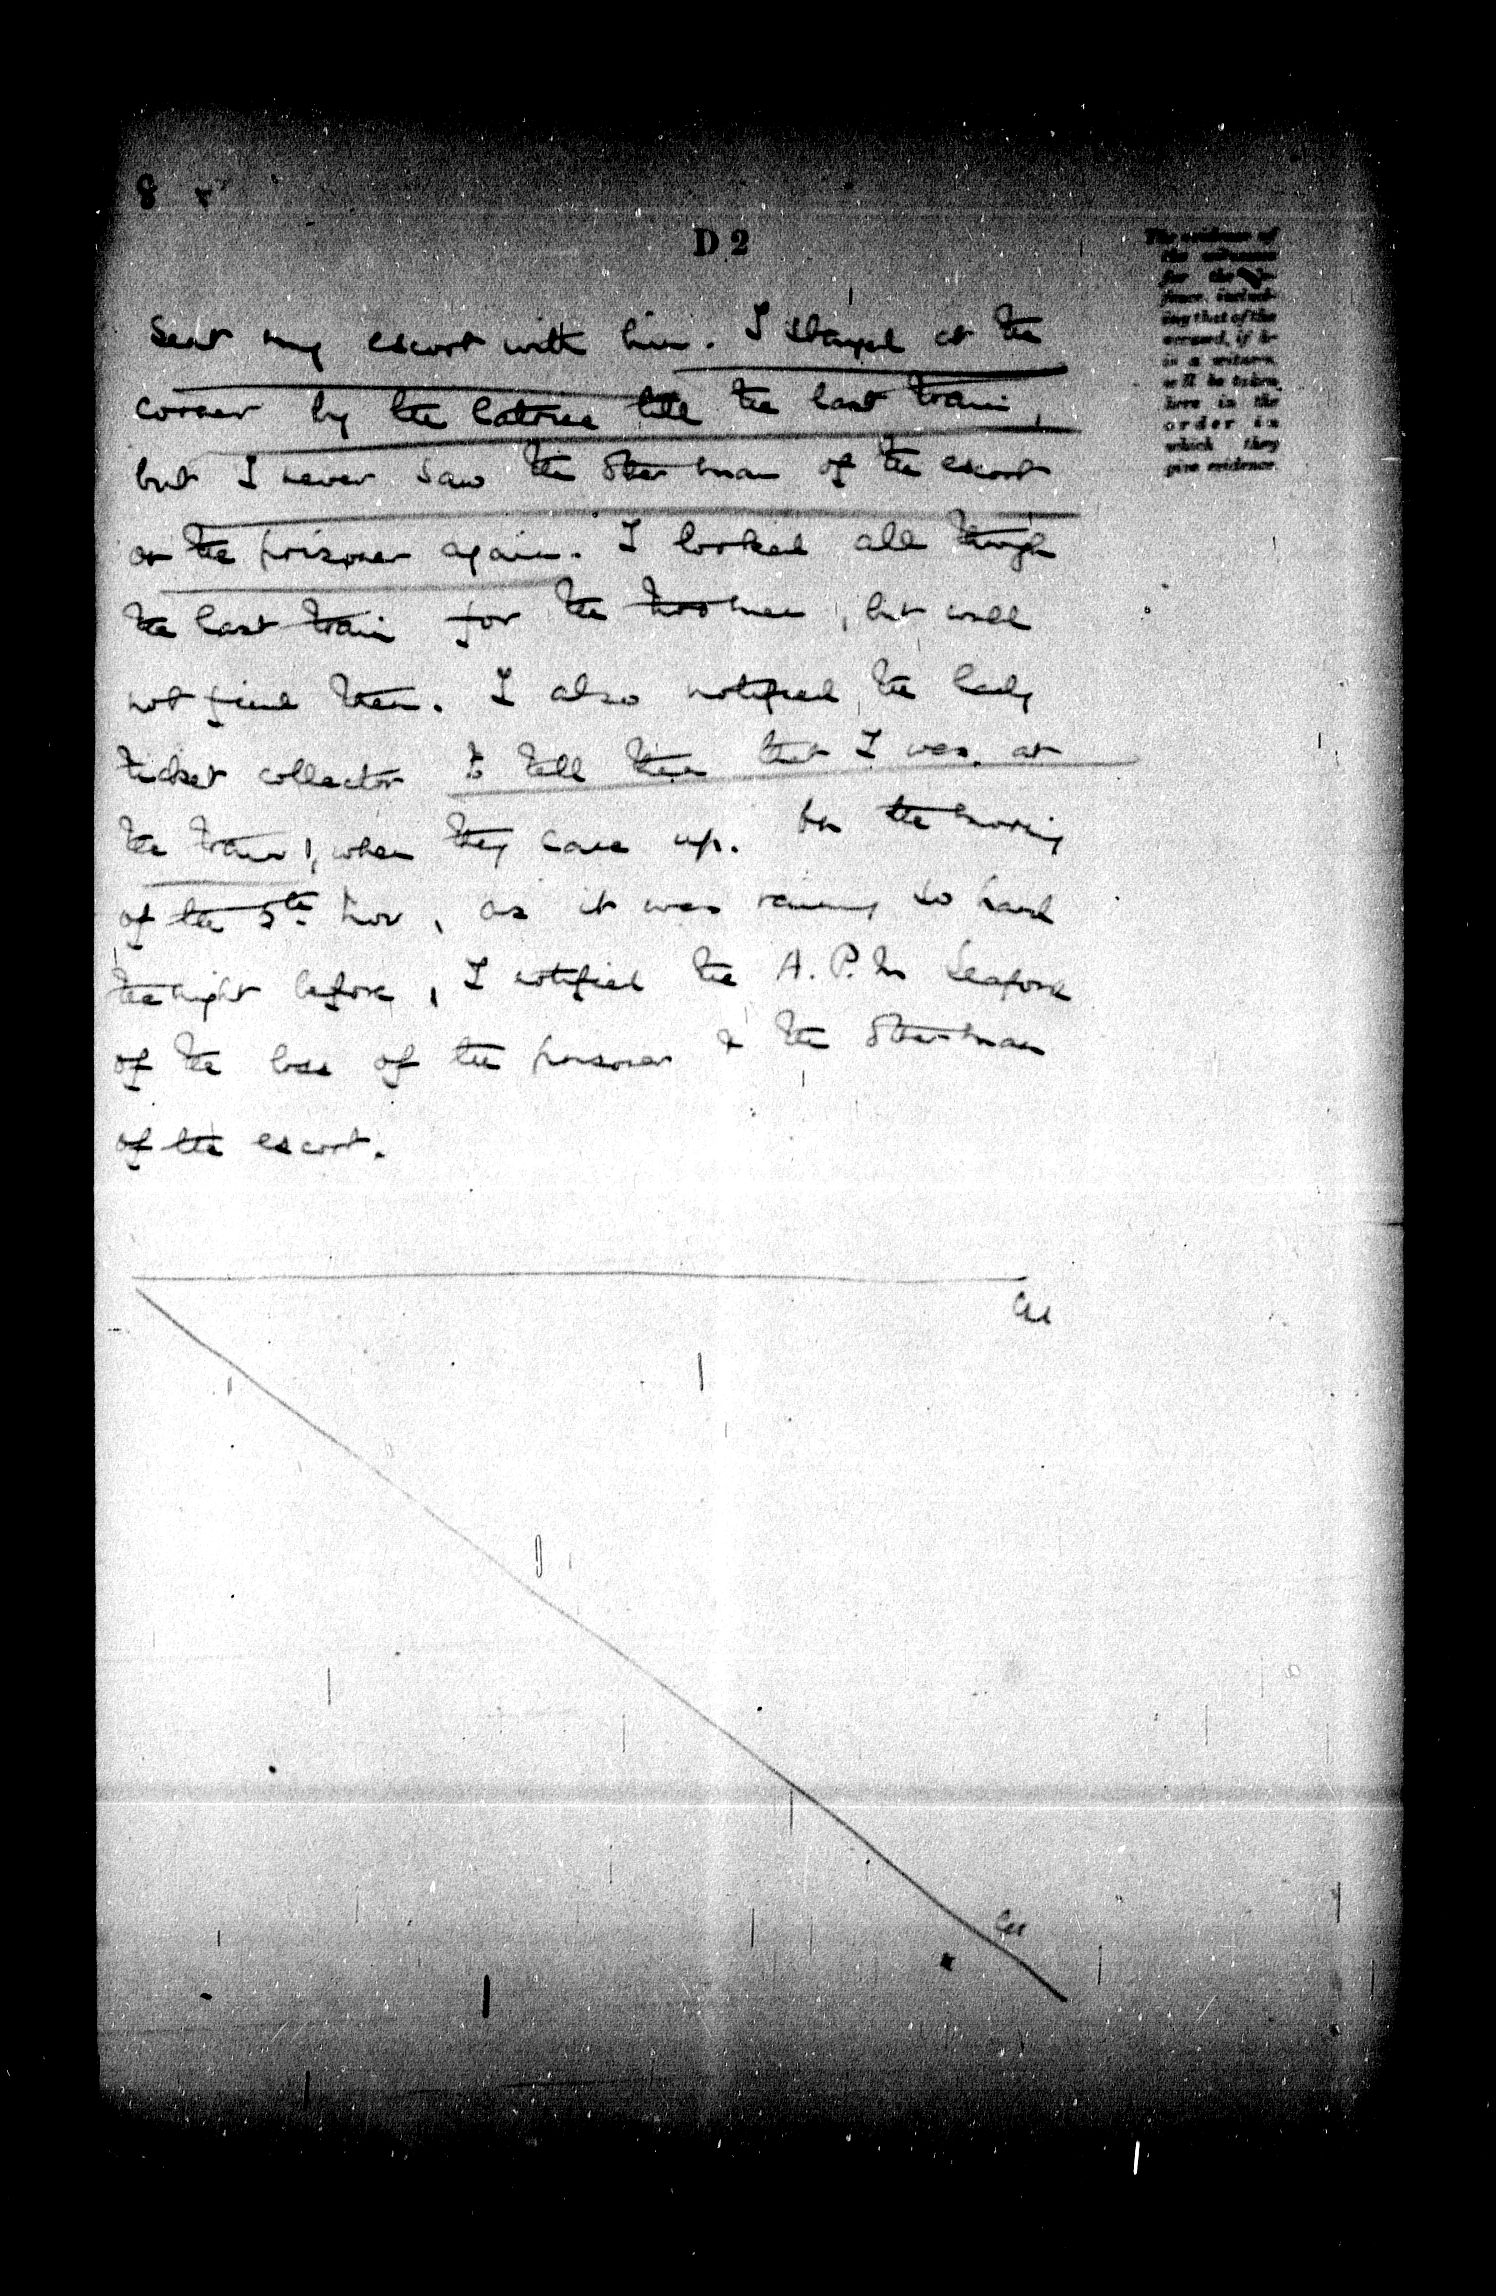 8
D 2
The evidence of
the witnesses
for the de-
fence, includ-
ing that of the
accused, if he
is a witness,
will be taken
here in the
order in
which they
give evidence.
Sent my escort with him. I stayed at the
corner by the latrine till the last train,
but I never saw the other man of the escort
or the prisoner again. I looked all through
the last train for the two men, but could
not find them. I also notified the lady
ticket collector to tell them that I was at
the train, when they came up. On the morning
of the 5th Nov, as it was raining so hard
the night before, I notified the A.P.M Seaford
of the loss of the prisoner & the other man
of the escort.